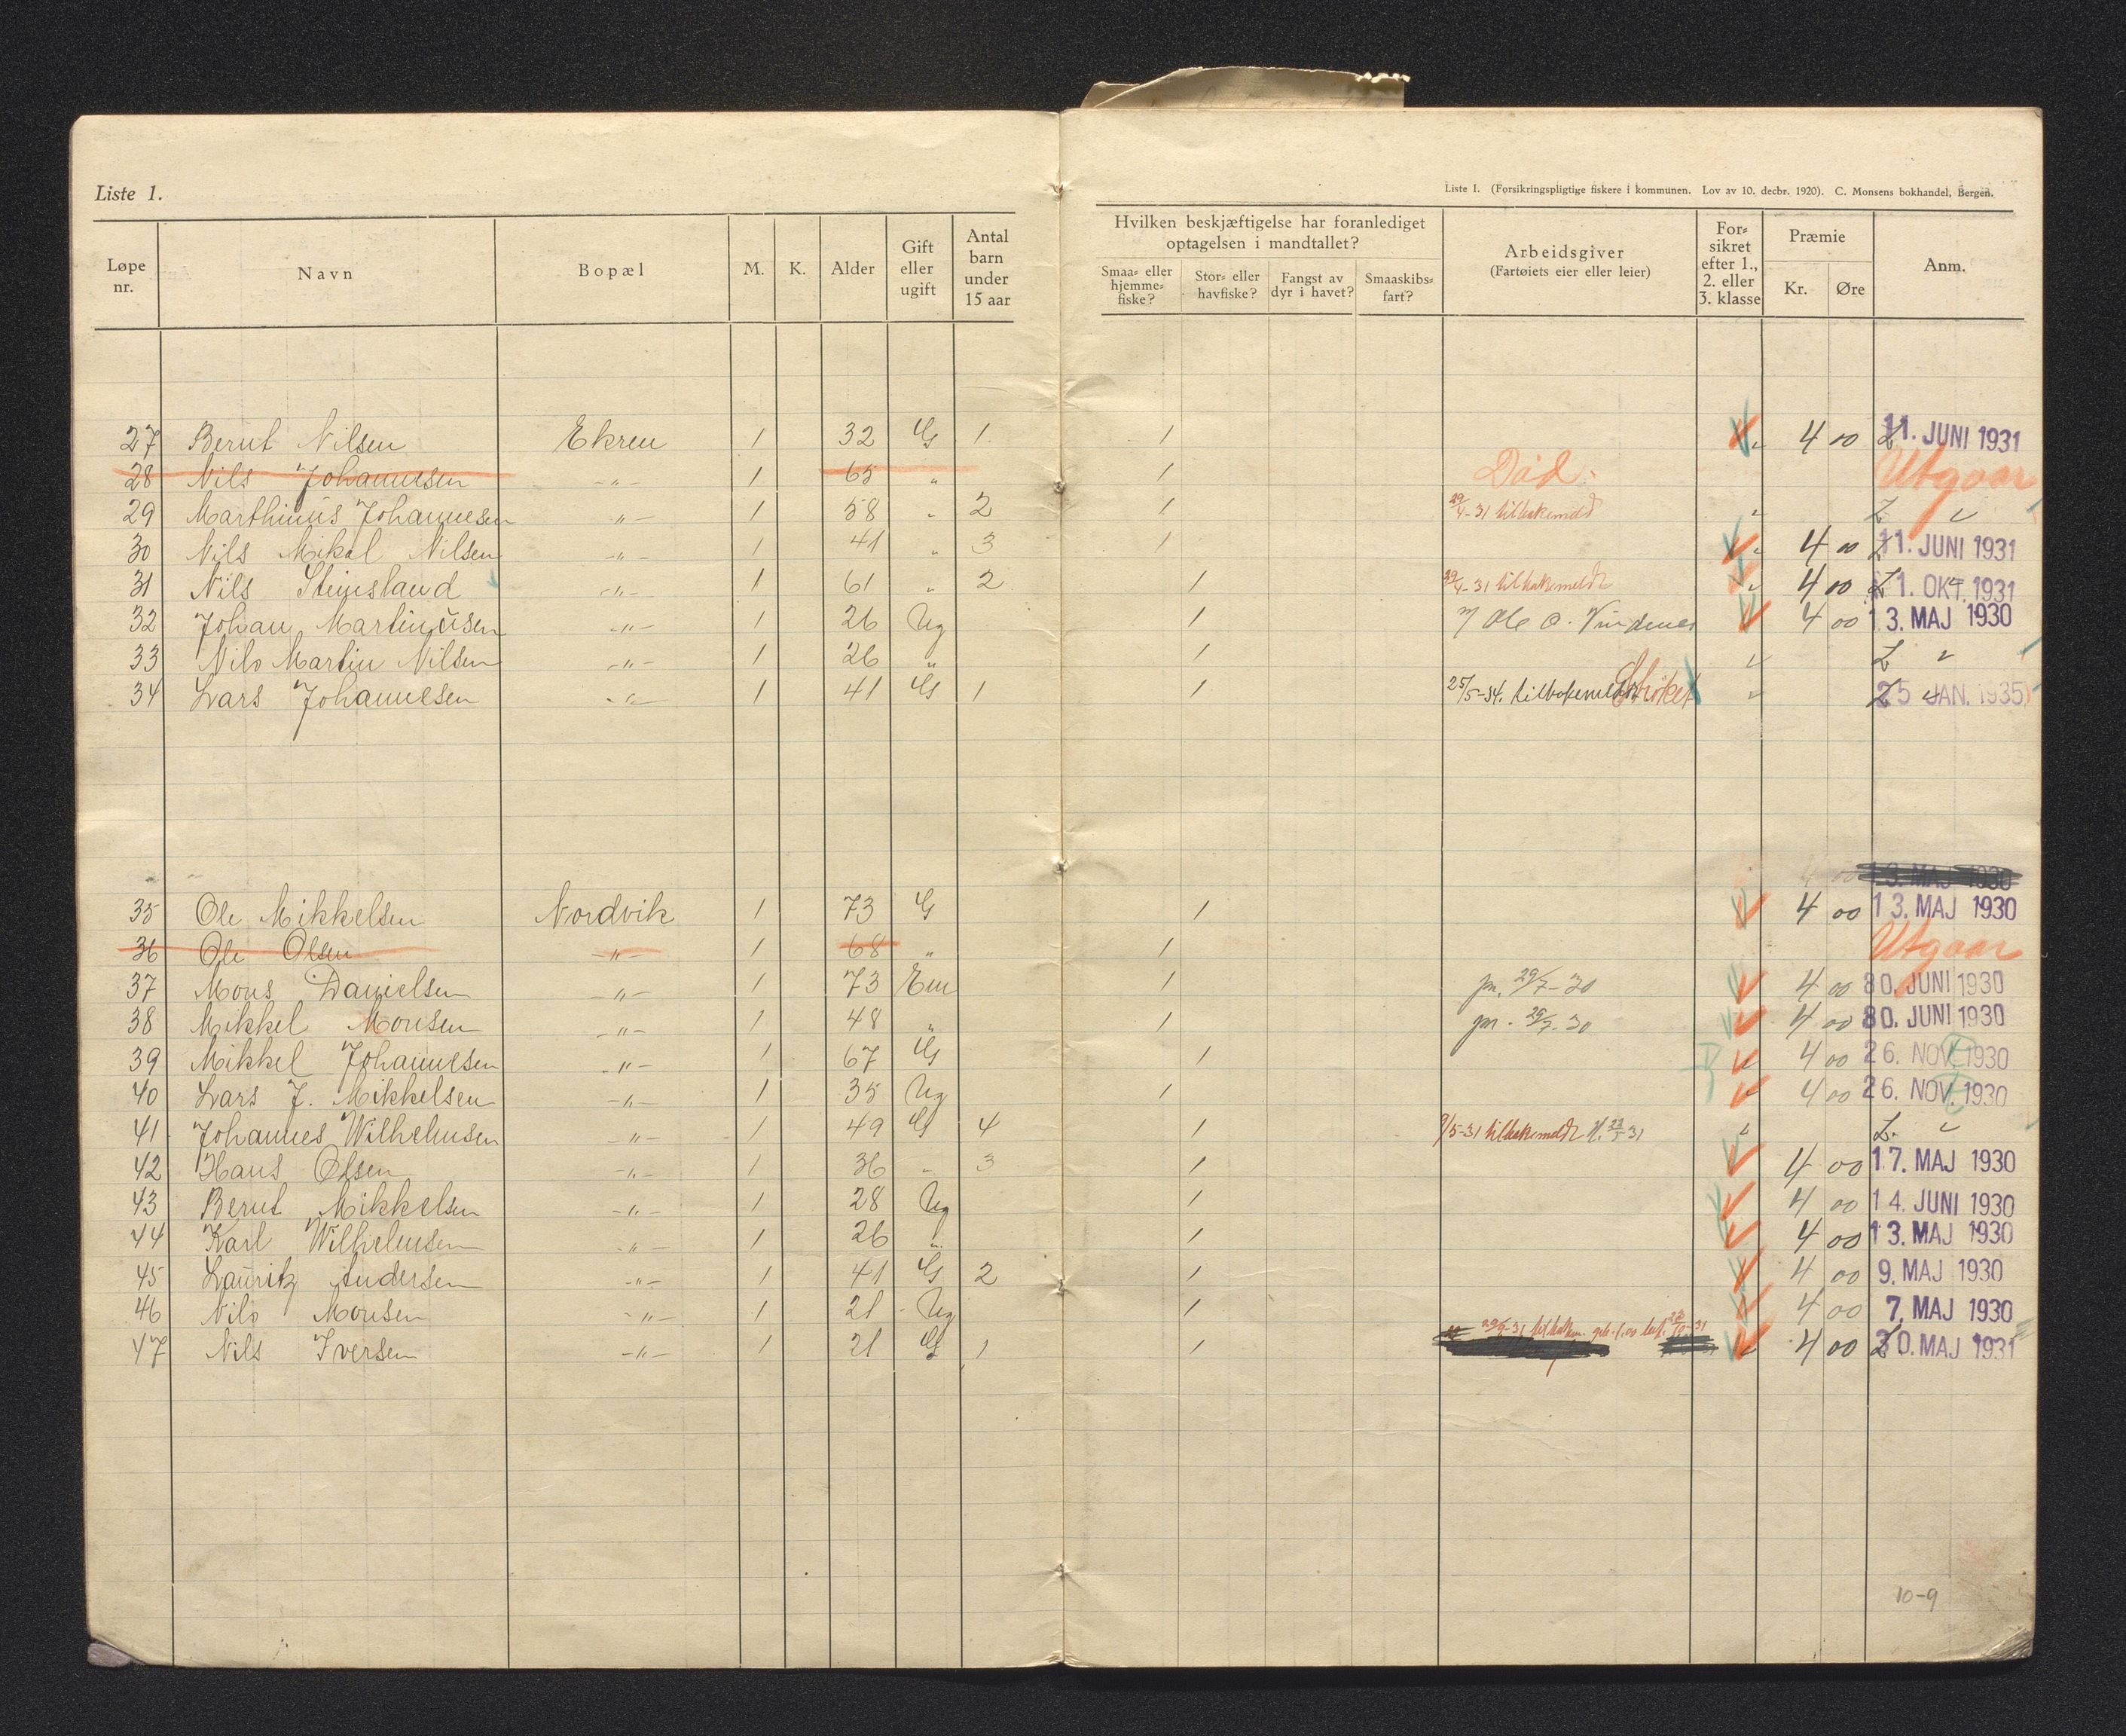 Liste 1.
Liste 1. (Forsikringspligtige fiskere i kommunen. Lov av 10. decbr. 1920). C. Monsens bokhandel, Bergen.
Løpe nr. Navn Bopæl M. K. Alder Gift eller ugift Antal barn under 15 aar Hvilken beskjæftigelse har foranlediget optagelsen i mandtallet? Smaa- eller hjemme-fiske? Stor- eller havfiske? Fangst av dyr i havet? Smaaskibs-fart? Arbeidsgiver (Fartøiets eier eller leier) For-sikret efter 1., 2. eller 3. klasse Præmie Kr. Øre Anm.
27 Bernt Nilsen Ekren 1 32 G 1 1 4 00 11. JUNI 1931
28 Nils Johannesen -"- 1 65 " 1 Død. Utgaar
29 Marthinus Johannesen -"- 1 58 " 2 1 29/4-31 tilbakemeld
30 Nils Mikal Nilsen -"- 1 41 " 3 1 4 00 11. JUNI 1931
31 Nils Steinsland -"- 1 61 " 2 1 29/4-31 tilbakemeldt 4 00 1. OKT. 1931
32 Johan Martinusen -"- 1 26 Ug 1 Ole O. Vindenes 4 00 13. MAJ 1930
33 Nils Martin Nilsen -"- 1 26 " 1
34 Lars Johannesen -"- 1 41 G 1 1 25/5-34. tilbakemeldt Strøket 25 JAN. 1935
13. MAJ 1930
35 Ole Mikkelsen Nordvik 1 73 G 1 4 00 13. MAJ 1930
36 Ole Olsen -"- 1 68 " 1 Utgaar
37 Mons Danielsen -"- 1 73 Em 1 pr. 29/7-30 4 00 30. JUNI 1930
38 Mikkel Monsen -"- 1 48 " 1 pr. 29/7-30 4 00 30. JUNI 1930
39 Mikkel Johannesen -"- 1 67 G 1 4 00 26. NOV. 1930
40 Lars J. Mikkelsen -"- 1 35 Ug 1 4 00 26. NOV. 1930
41 Johannes Wilhelmsen -"- 1 49 G 4 1 9/5-31 tilbakemeldt
42 Hans Olsen -"- 1 36 " 3 1 4 00 17. MAJ 1930
43 Bernt Mikkelsen -"- 1 28 Ug 1 4 00 14. JUNI 1930
44 Karl Wilhelmsen -"- 1 26 " 1 4 00 13. MAJ 1930
45 Lauritz Andersen -"- 1 41 G 2 1 4 00 9. MAJ 1930
46 Nils Monsen -"- 1 21 Ug 1 4 00 7. MAJ 1930
47 Nils Iversen -"- 1 21 G 1 1 4 00 30. MAJ 1931
10-9